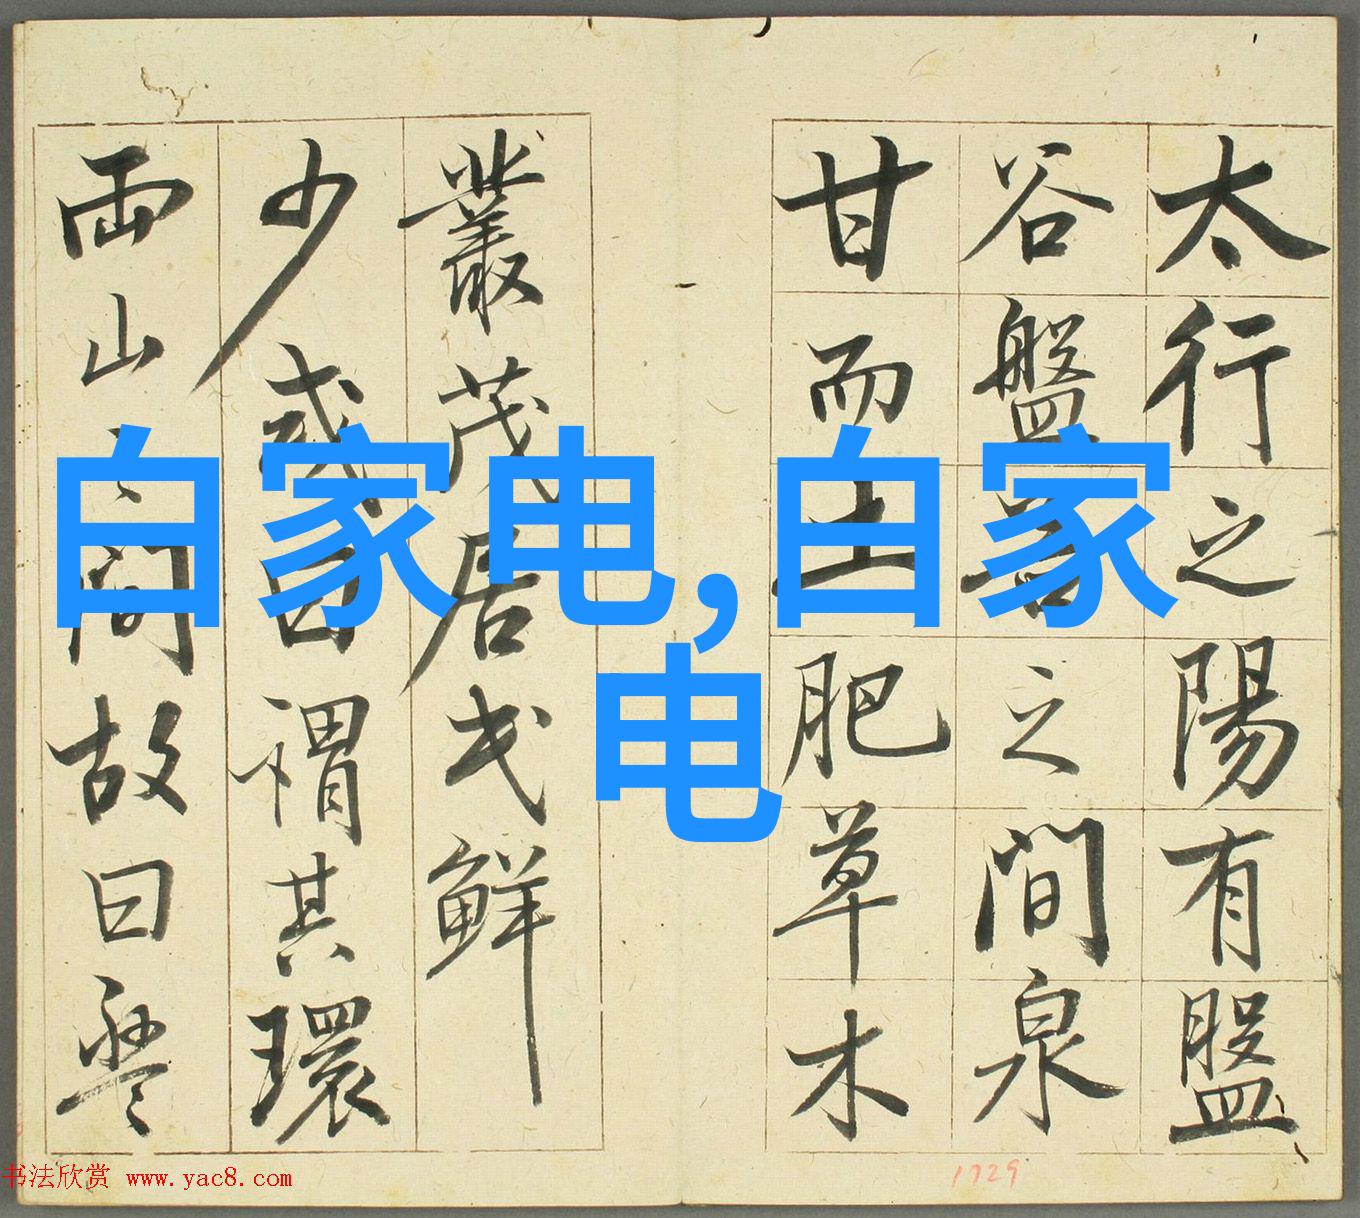 太行之陽有盤
谷盤谷之間泉
甘而土肥草木
叢茂居民鮮
少或曰謂其環
兩山之間故曰盤
白家电,白家
电
书法欣赏 www.yac8.com
1729